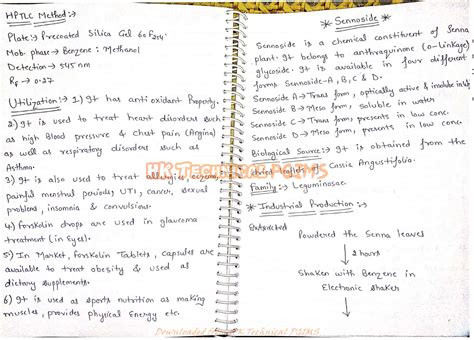 HPTLC Method:→
Plate → Precoated Silica Gel 60F254
Mob. phase → Benzene : Methanol
Detection → 545 nm
Rf → 0.27
Utilization:→ 1) It has anti oxidant Property.
2) It is used to treat heart disorders such
as high Blood pressure & chest pain (Angina)
as well as respiratory disorders such as
Asthma.
3) It is also used to treat allergies, eczema,
painful menstrual periods, UTI, cancer, sexual
problems, insomnia & convulsions.
4) Forskolin drops are used in glaucoma
treatment (in Eyes).
5) In Market, Forskolin Tablets, capsules are
available to treat obesity & used as
dietary supplements.
6) It is used as sports nutrition as making
muscles, provides physical Energy etc.
* Sennoside *
Sennoside is a chemical constituent of Senna
plant. It belongs to anthraquinone (O-Linkage)
glycoside. It is available in four different
forms Sennoside-A, B, C & D.
Sennoside A → Trans form, optically active & insoluble in water
Sennoside B → Meso form, soluble in water
Sennoside C → Trans form, presents in low conc.
Sennoside D → Meso form, presents in low conc.
Biological Source:→ It is obtained from the
dried leaflets of Cassia Angustifolia.
Family:→ Leguminosae.
* Industrial Production:→
Extracted
Powdered the Senna leaves
↓ 2 hours
Shaken with Benzene in
Electronic shaker
↓
HK Technical PGIMS
Downloaded From HK Technical PGIMS